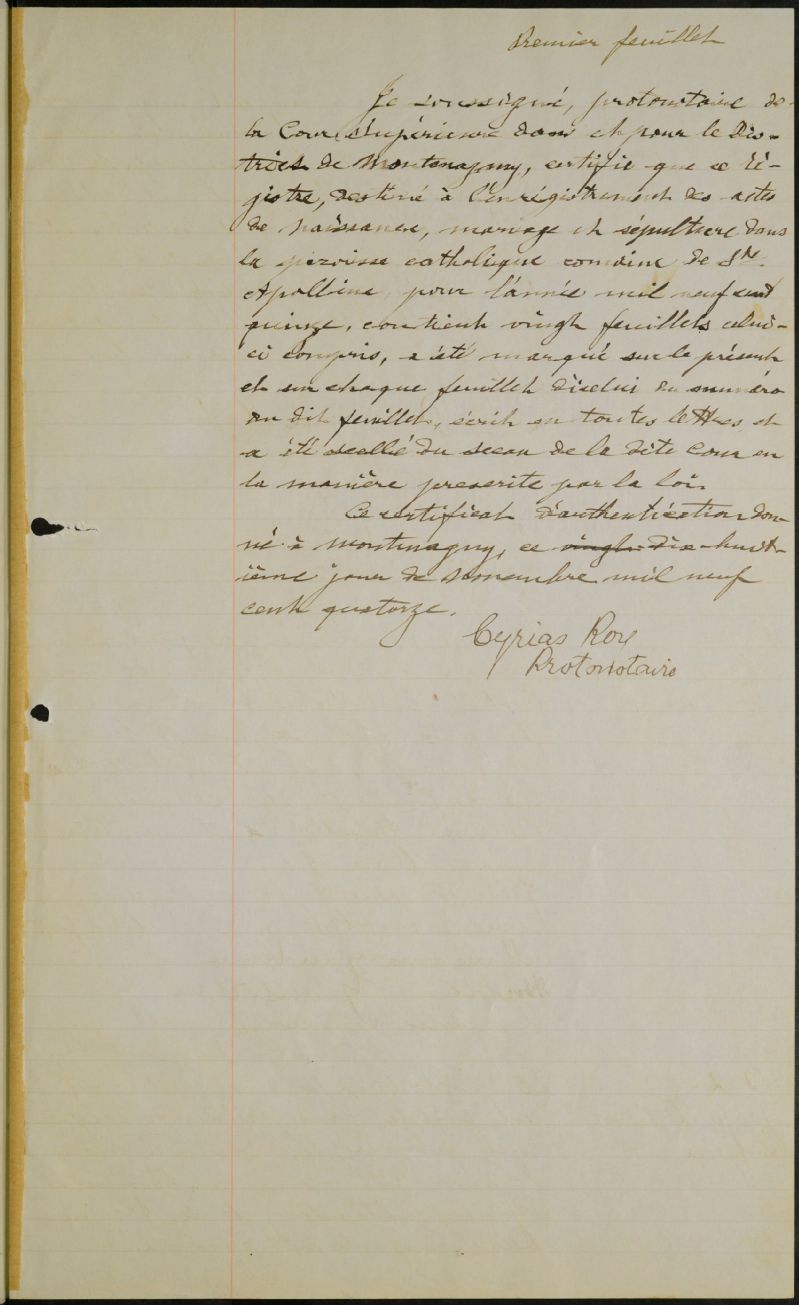 Premier feuillet
Je soussigné, protonotaire de
la Cour Supérieure dans et pour le Dis-
trict de Montmagny, certifie que ce ré-
gistre, destiné à l'enrégistrement des actes
de naissance, mariage et sépulture dans
la paroisse catholique romaine de Ste.
Apolline pour l'année mil neuf cent
quinze, contient vingt feuillets celui-
ci compris, a été marqué sur le présent
et sur chaque feuillet d'icelui du numéro
du dit feuillet, écrit en toutes lettres et
a été scellé du sceau de la dite Cour en
la manière prescrite par la loi.
Ce certificat d'authentication don-
né à Montmagny, ce vingt dix-huit-
ième jour de novembre mil neuf
cent quatorze.
Cyrias Roy
Protonotaire